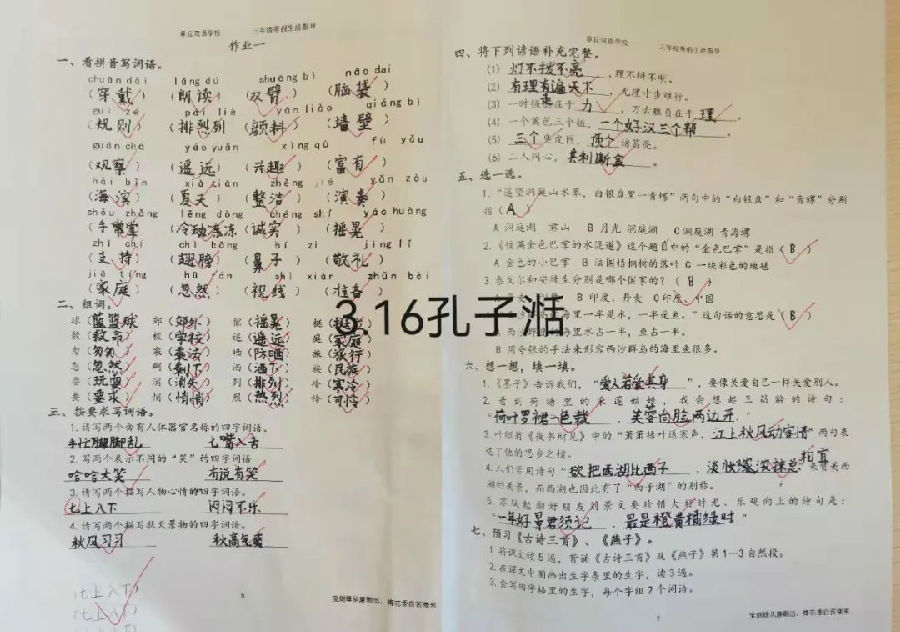 章丘双语学校 三年级寒假生活指导
作业一
一、看拼音写词语。
chuān dài lǎng dú shuāng bì nǎo dai
(穿戴) (朗读) (双臂) (脑袋)
guī zé pái liè yán liào qiáng bì
(规则) (排列列) (颜料) (墙壁)
guān chá yáo yuǎn xìng qù fù yǒu
(观察) (遥远) (兴趣) (富有)
hǎi bīn xià tiān zhěng jié yǎn zòu
(海滨) (夏天) (整洁) (演奏)
shǒu zhǎng lěng dòng chéng shí yáo huàng
(手掌) (冷动冻冻) (诚实) (摇晃)
zhī chí chì bǎng bí zi jìng lǐ
(支持) (翅膀) (鼻子) (敬礼)
jiā tíng hū rán shì xiàn zhǔn bèi
(家庭) (忽然) (视线) (准备)
二、组词。
球(蓝篮球) 郊(郊外) 摇(摇晃)
救(救命) 校(学校) 遥(遥远) 庭(家庭)
匆(匆匆) 乘(乘法) 旅(旅行)
忽(忽然) 剩(剩下) 洒(洒下) 族(民族)
要(要求) 悄(悄悄) 烈(热烈) 怜(可怜)
三、按要求写词语。
1.请写两个含有人体器官名称的四字词语。
手忙脚乱 七嘴八舌
2.写两个表示不同的“笑”的四字词语
哈哈大笑 有说有笑
3.请写两个描写人物心情的四字词语。
七上八下 闷闷不乐
4.请写两个描写秋天景物的四字词语。
秋风习习 秋高气爽
七上八下
(七上八下)
宝剑锋从磨砺出,梅花香自苦寒来
章丘双语学校 三年级寒假生活指导
四、将下列谚语补充完整。
(1) 灯不拨不亮,理不辩不明。
(2) 有理走遍天下,无理寸步难行。
(3) 一时强弱在于力,万古胜负在于理。
(4) 一个篱笆三个桩,一个好汉三个帮
(5) 三个臭皮匠,顶个诸葛亮。
(6) 二人同心,其利断金。
五、选一选。
1.“遥望洞庭山水翠,白银盘里一青螺”两句中的“白银盘”和“青螺”分别
指(A)
A 洞庭湖 君山 B 月光 洞庭湖 C洞庭湖 青海螺
2.《铺满金色巴掌的水泥道》这个题目中的“金色巴掌”是指(B)
A 金色的小巴掌 B 法国梧桐树的落叶 C 一块彩色的地毯
3.泰戈尔和安徒生分别是哪个国家的?(B)
B 印度、丹麦 C印度、中国
海里一半是水,一半是鱼。”这句话的意思是(B)
海里水占一半,鱼占一半。
B 用夸张的手法来形容西沙群岛的海里鱼很多。
六、想一想,填一填。
1.《墨子》告诉我们,“爱人若爱其身”,要像关爱自己一样关爱别人。
2.看到荷塘里的采莲姑娘,我会想起王昌龄的诗句:
“荷叶罗裙一色裁,芙蓉向脸两边开。”
3.叶绍翁《夜书所见》中的“萧萧梧叶送寒声,江上秋风动客情”两句表
达了他的思乡之情。
4.人们常用诗句“欲把西湖比西子,淡妆浓抹总相宜”来赞美西
湖的美景,而西湖也因此有了“西子湖”的别称。
5.苏轼勉励好朋友刘景文要珍惜大好时光、乐观向上的诗句是:
“一年好景君须记,最是橙黄橘绿时”
七、预习《古诗三首》、《燕子》。
1.将课文读5遍,背诵《古诗三首》及《燕子》第1—3自然段。
2.在课文中圈画出生字条里的生字,读3遍。
3.会写田字格里的生字,每个字组2个词语。
7
宝剑锋从磨砺出,梅花香自苦寒来
3.16孔子湉